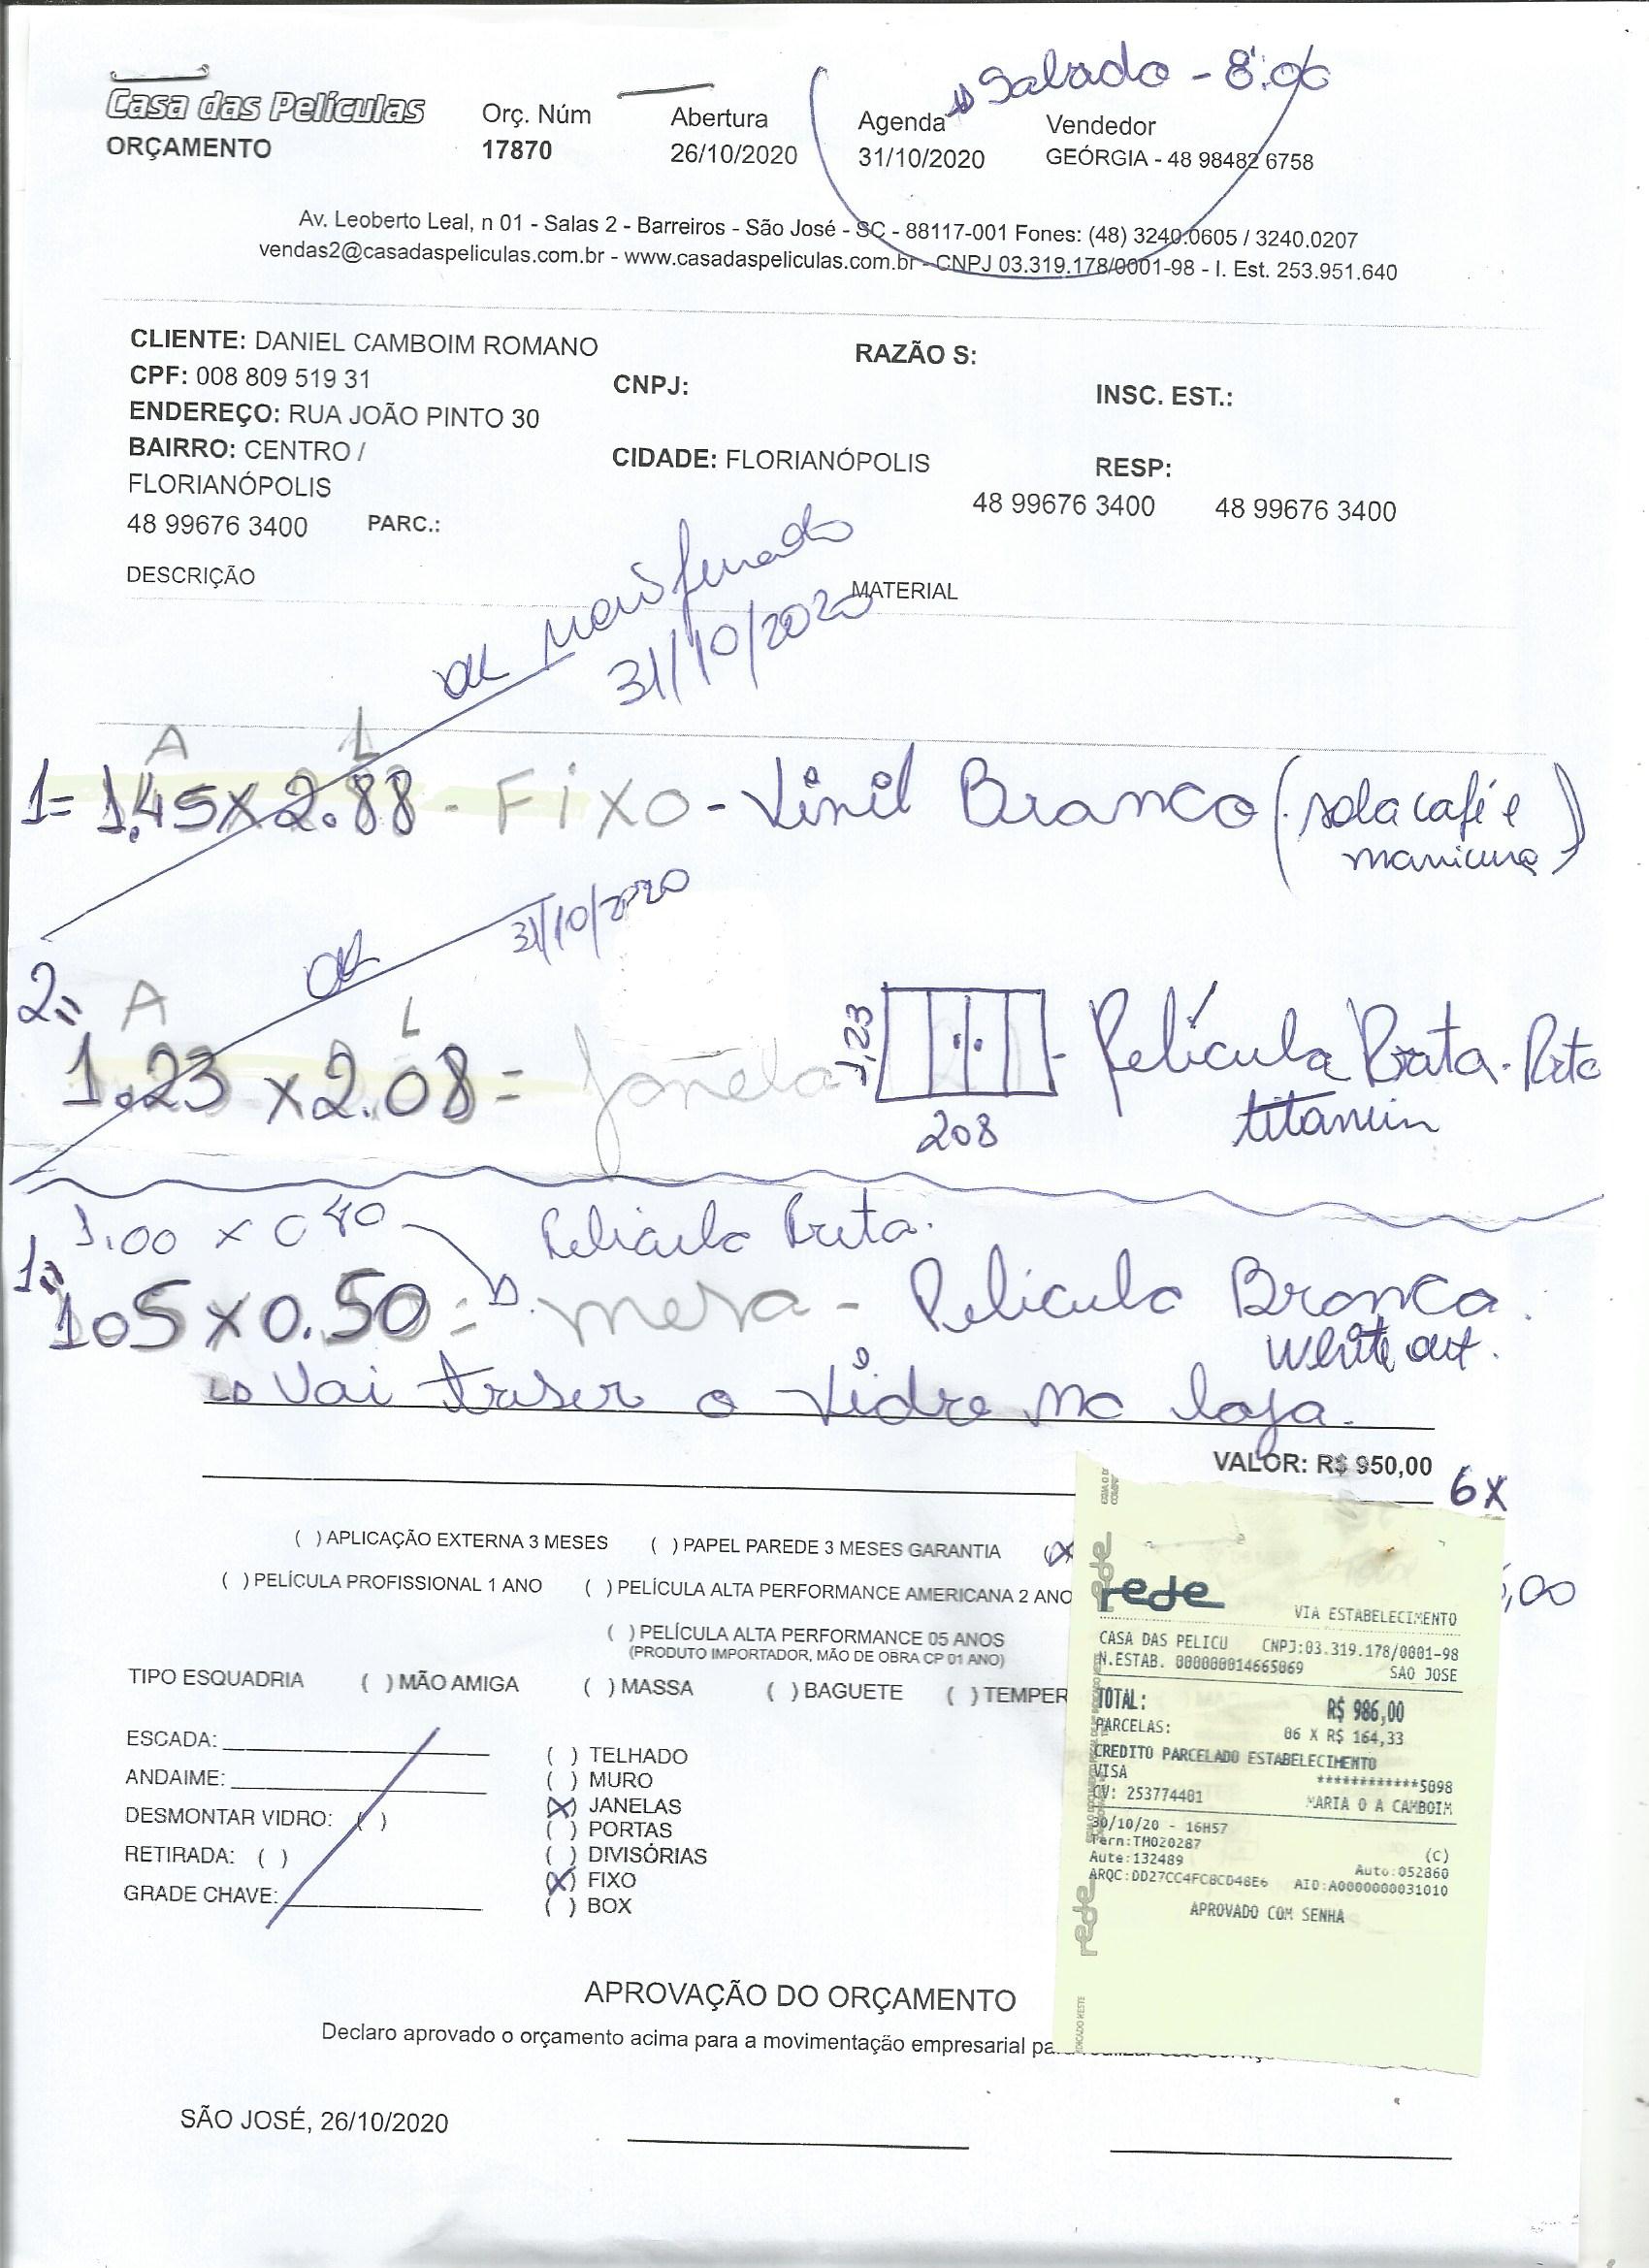 Sabado - 8:00
Casa das Películas
ORÇAMENTO
Orç. Núm
17870
Abertura
26/10/2020
Agenda
31/10/2020
Vendedor
GEÓRGIA - 48 98482 6758
Av. Leoberto Leal, n 01 - Salas 2 - Barreiros - São José - SC - 88117-001 Fones: (48) 3240.0605 / 3240.0207
vendas2@casadaspeliculas.com.br - www.casadaspeliculas.com.br - CNPJ 03.319.178/0001-98 - I. Est. 253.951.640
CLIENTE: DANIEL CAMBOIM ROMANO
RAZÃO S:
CPF: 008 809 519 31
CNPJ:
INSC. EST.:
ENDEREÇO: RUA JOÃO PINTO 30
BAIRRO: CENTRO /
FLORIANÓPOLIS
CIDADE: FLORIANÓPOLIS
RESP:
48 99676 3400 PARC.:
48 99676 3400 48 99676 3400
DESCRIÇÃO
MATERIAL
ok
31/10/2020
A L
1= 1.45 x 2.88 - Fixo - Vinil Branco (sala café e
manicure)
ok 31/10/2020
2= A L
1.23 x 2.08 = Janela
1,23
208
- Película Prata - Preta
titanium
1.00 x 0 40 Pelicula Preta.
1= 105 x 0.50 = mesa - Pelicula Branca.
White out.
Vai traser o vidro na loja.
VALOR: R$ 950,00
6x
( ) APLICAÇÃO EXTERNA 3 MESES ( ) PAPEL PAREDE 3 MESES GARANTIA (X
( ) PELÍCULA PROFISSIONAL 1 ANO ( ) PELÍCULA ALTA PERFORMANCE AMERICANA 2 ANO
,00
( ) PELÍCULA ALTA PERFORMANCE 05 ANOS
(PRODUTO IMPORTADOR, MÃO DE OBRA CP 01 ANO)
TIPO ESQUADRIA ( ) MÃO AMIGA ( ) MASSA ( ) BAGUETE ( ) TEMPER
ESCADA:
ANDAIME:
DESMONTAR VIDRO: ( )
RETIRADA: ( )
GRADE CHAVE:
( ) TELHADO
( ) MURO
(X) JANELAS
( ) PORTAS
( ) DIVISÓRIAS
(X) FIXO
( ) BOX
rede
VIA ESTABELECIMENTO
CASA DAS PELICU CNPJ:03.319.178/0001-98
N.ESTAB. 000000014665069 SAO JOSE
TOTAL: R$ 986,00
PARCELAS: 06 X R$ 164,33
CREDITO PARCELADO ESTABELECIMENTO
VISA ************5098
CV: 253774401 MARIA O A CAMBOIM
30/10/20 - 16H57
Term:TM020287 (C)
Aute:132489 Auto:052860
ARQC:DD27CC4FC8CD48E6 AID:A0000000031010
APROVADO COM SENHA
rede
rede
APROVAÇÃO DO ORÇAMENTO
Declaro aprovado o orçamento acima para a movimentação empresarial pa
SÃO JOSÉ, 26/10/2020